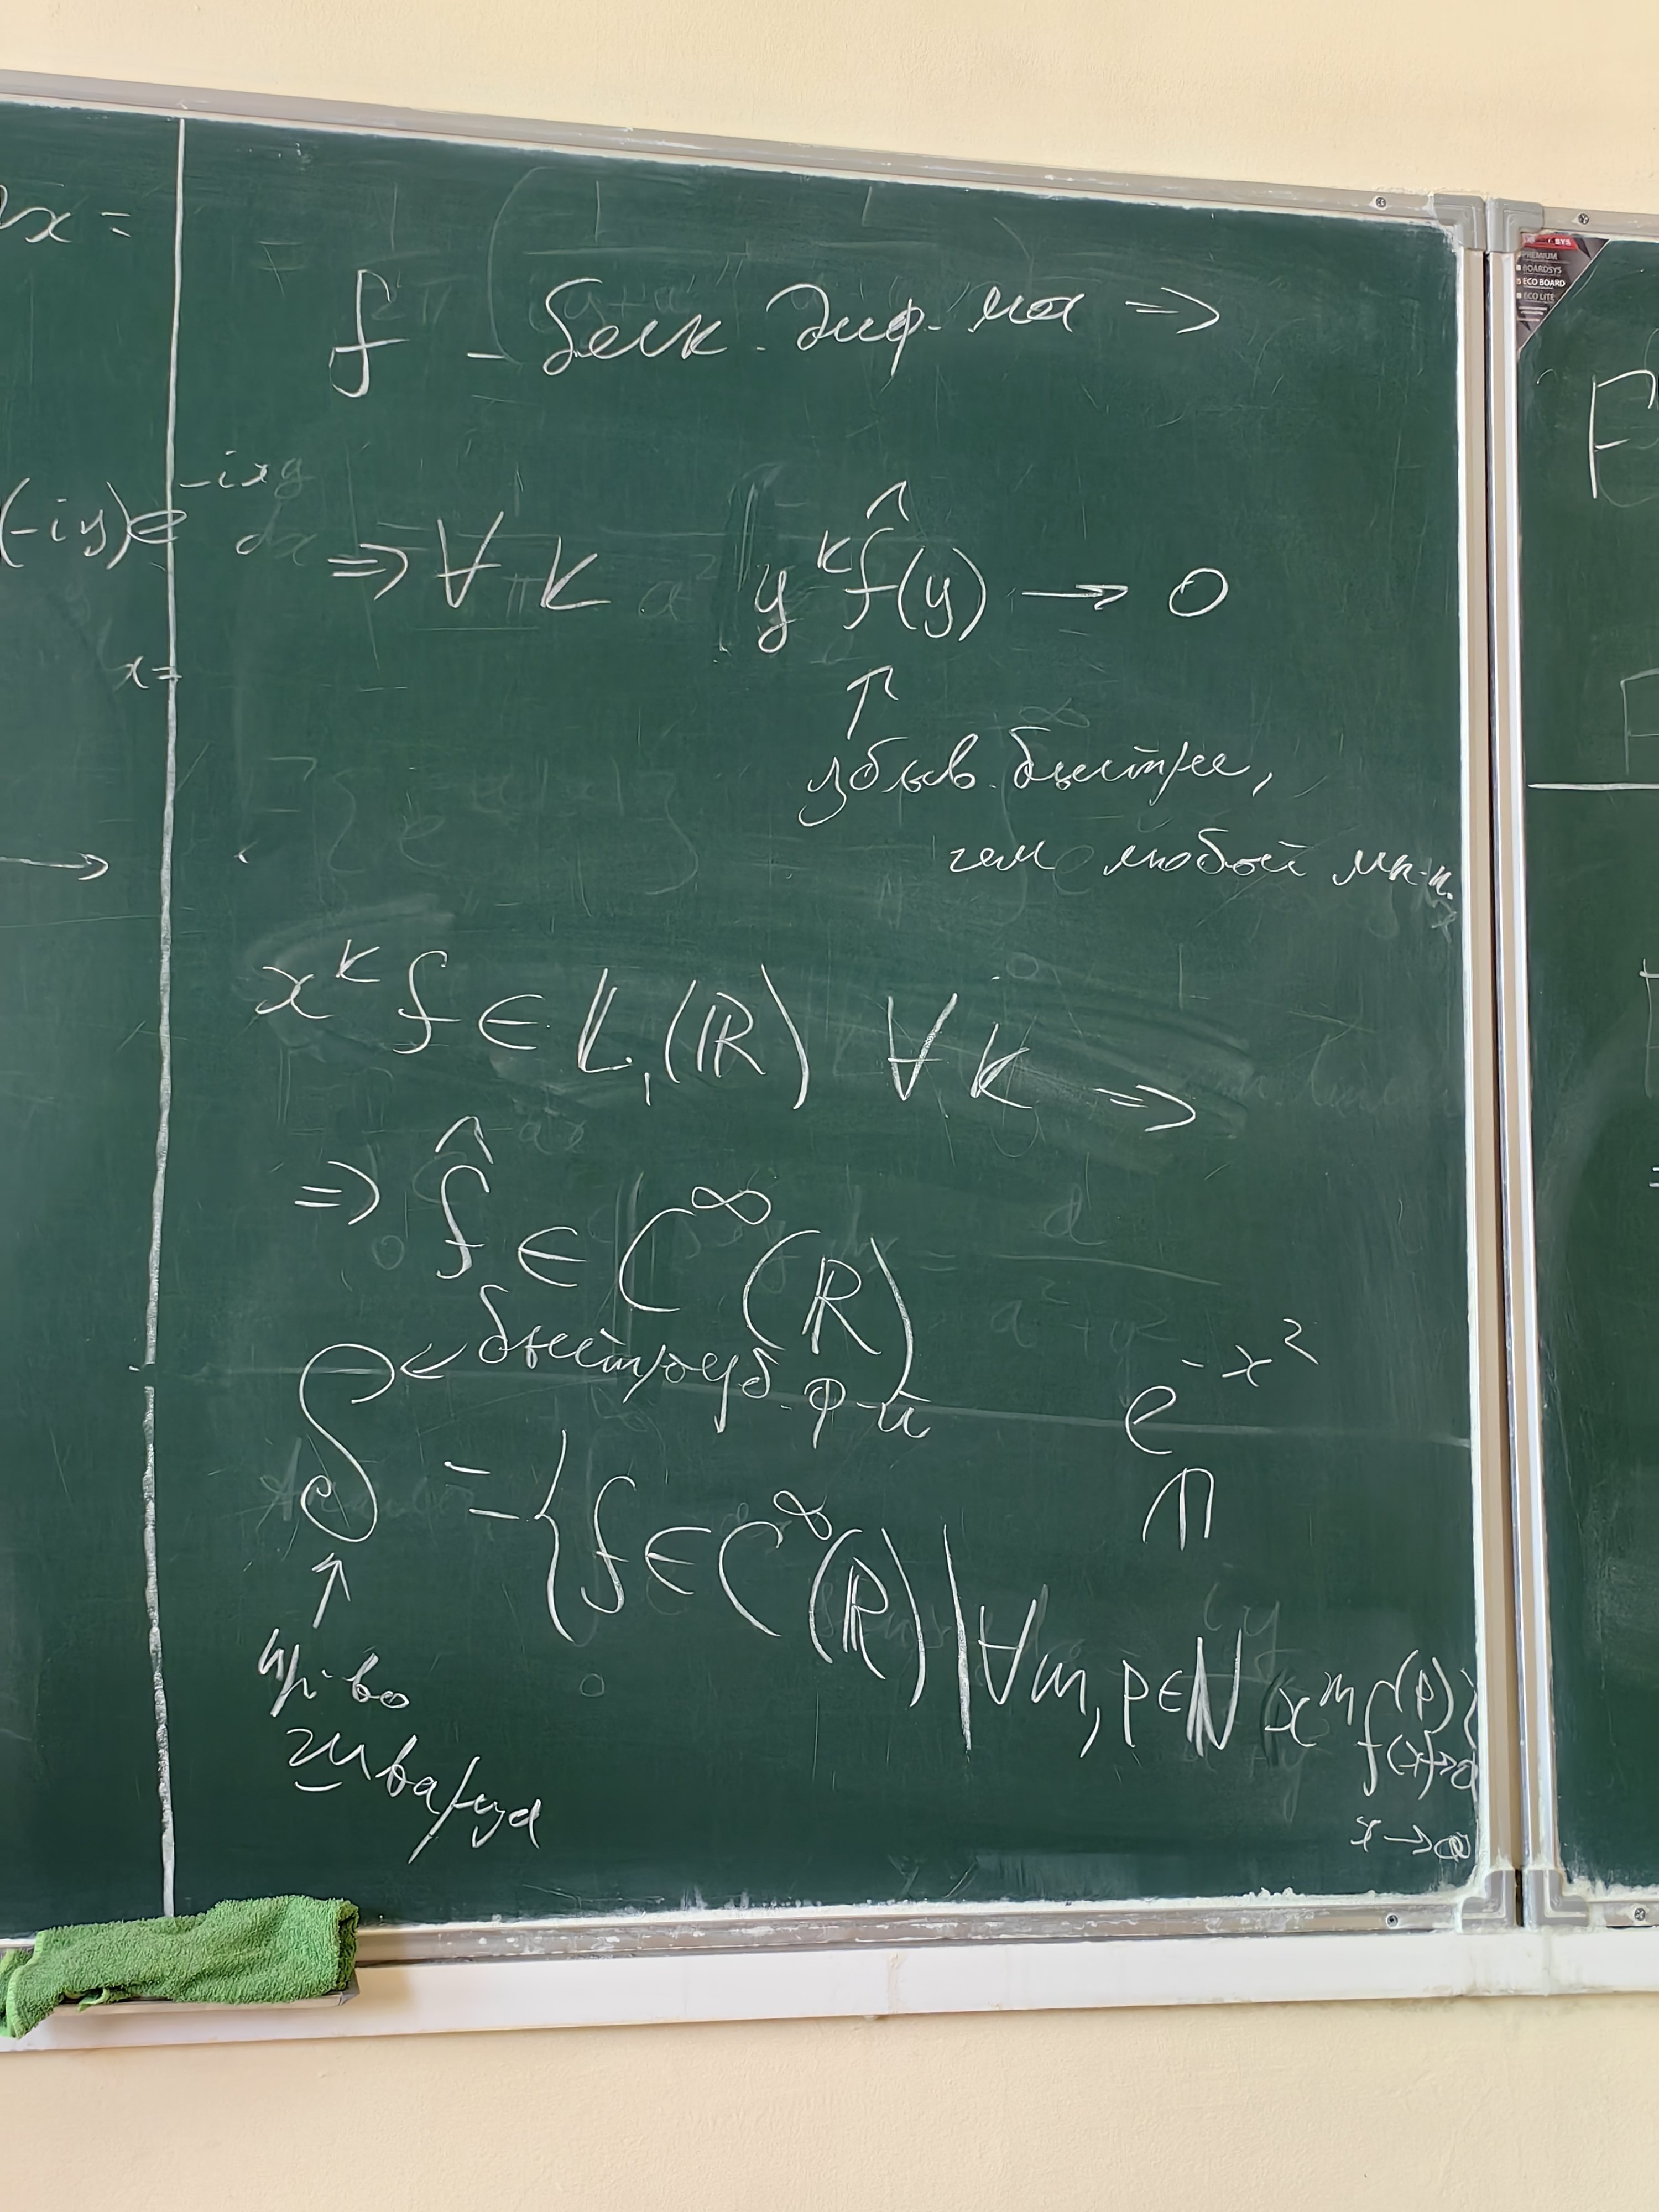 dx =
(-iy)e^{-ixy} dx
x=
→
f - беск. диф-мая ⇒
⇒ ∀ k y^k f̂(y) → 0
↑
убыв. быстрее,
чем любой мн-н.
x^k f ∈ L_1(ℝ) ∀ k ⇒
⇒ f̂ ∈ C^∞(ℝ)
S ← быстроуб. ф-й
e^{-x^2}
= {f ∈ C^∞(ℝ) | ∀m, p ∈ ℕ x^m f^{(p)}(x) → 0
x → ∞
↑
пр-во
Шварца
SYS
PREMIUM
BOARDSYS
ECO BOARD
ECO LITE
F